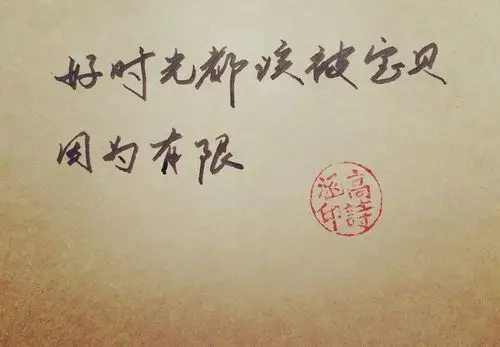 好时光都该被宝贝
因为有限
高詩涵印